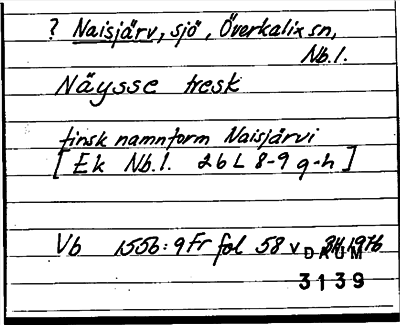 ? Naisjärv, sjö, Överkalix sn,
Nb.l.
Näysse tresk
finsk namnform Naisjärvi
[Ek Nb.l. 26 L 8-9 g-h]
Vb 1556:9 Fr fol 58 v 1976
DAUM
3139